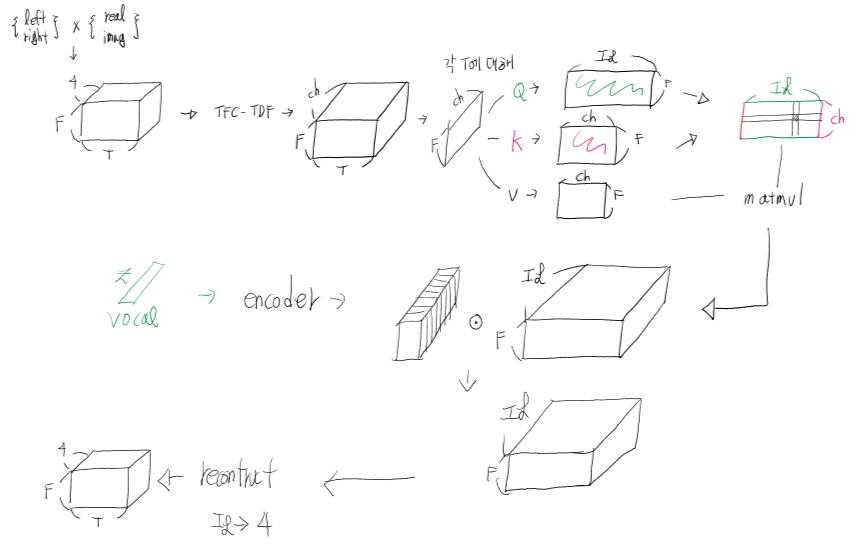 {left right} x {real imag}
4
F
T
TFC-TDF
ch
F
T
각 T에 대해
ch
F
Q
IL
F
K
ch
F
V
ch
F
IL
ch
matmul
z
vocal
encoder
IL
F
IL
F
recontruct
IL→4
4
F
T